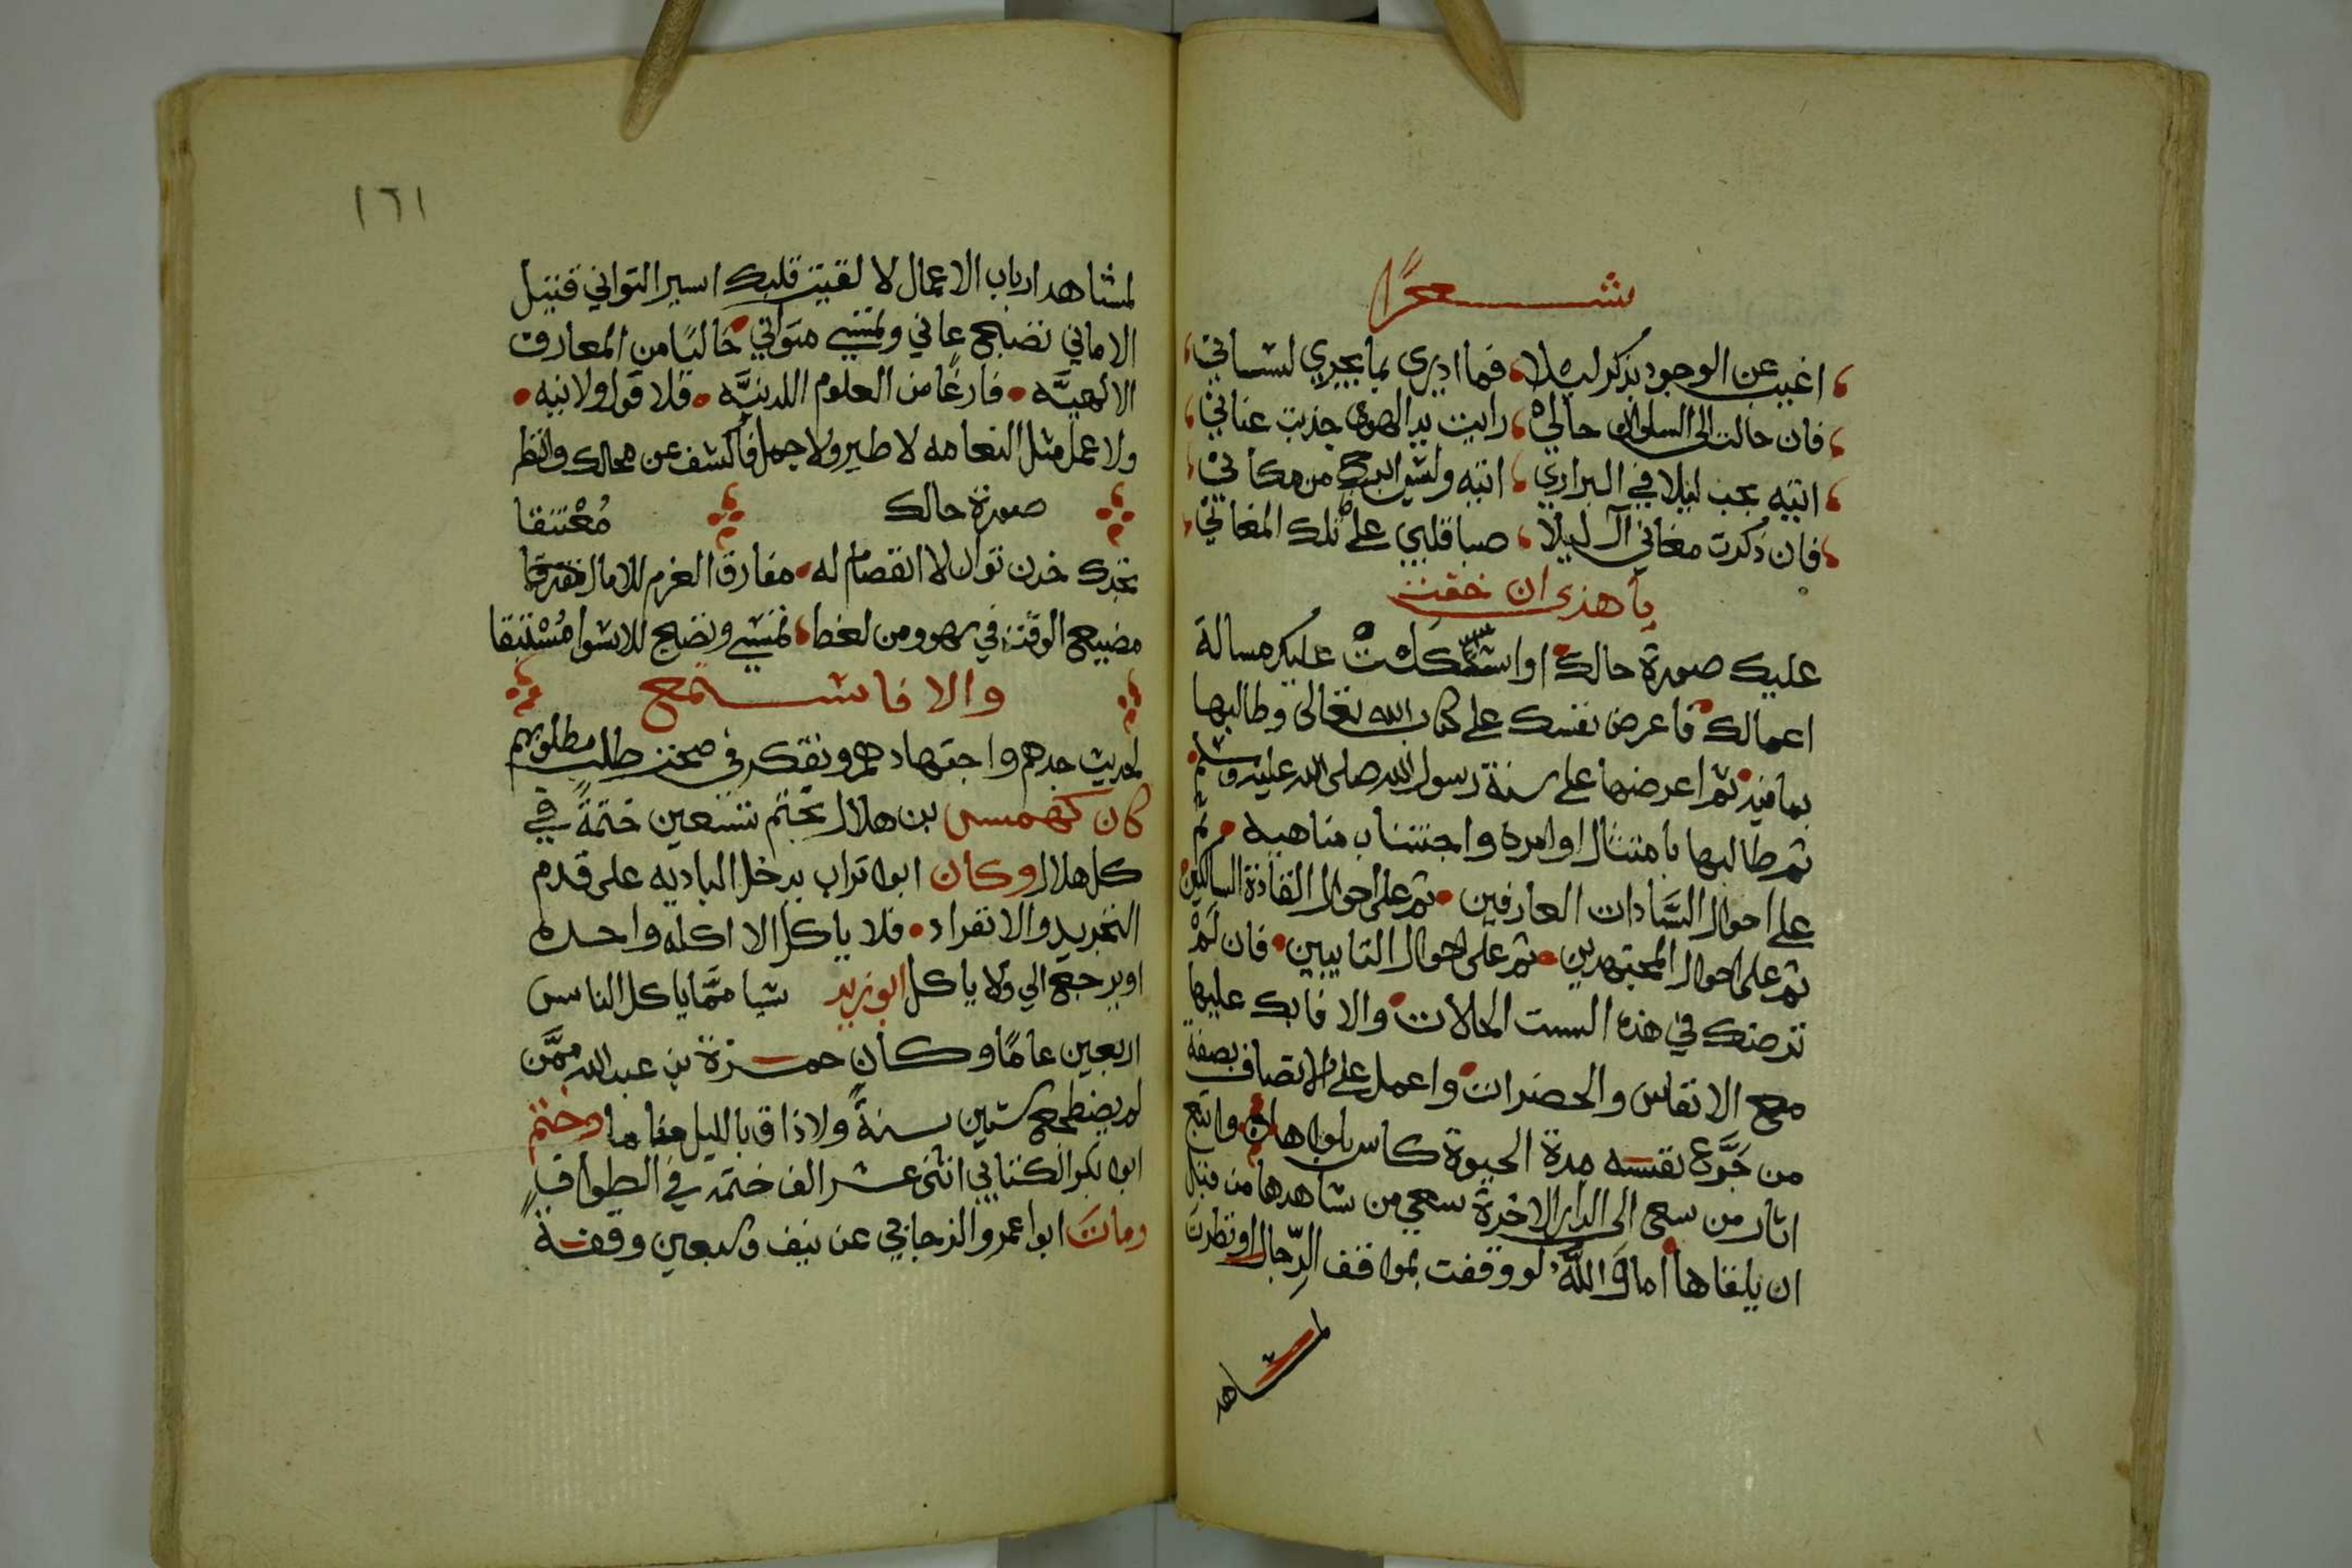 شعرًا
اغيب عن الوجود بذكر ليلا فما ادري بما يجري لساني
فان حالت الى السلوان حالي رايت يد الهوى جذبت عناني
اتيه بحب ليلا في البراري اتيه وليس ابرح من مكاني
فان ذكرت مغاني آل ليلا صبا قلبي على تلك المغاني
يا هذى ان خفيت
عليك صورة حالك او استشكلت عليك مسالة
اعمالك فاعرض نفسك على كتاب الله تعالى وطالبها
بما فيه ثم اعرضها على سنة رسول الله صلى الله عليه وسلم
ثم طالبها بامتثال اوامره واجتناب مناهيه ثم
على احوال السَّادات العارفين ثم على احوال القادة السالكين
ثم على احوال المجتهدين ثم على احوال التايبين فان لم
ترضك في هذه الست الحالات والا فابك عليها
مع الانفاس والحضرات واعمل على الاتصاف بصفة
من جَرَّع نفسه مدة الحيوة كاس بلواها واتبع
اثار من سعى الى الدار الاخرة سعي من شاهدها من قبل
ان يلقاها اما وَالله لو وقفت بمواقف الرّجال او نظرت
لمشاهد
١٦١
لمشاهد ارباب الاعمال لا لقيت قلبك اسير التواني قتيل
الاماني تضبح عاني وتمسي متواني خاليًا من المعارف
الالهيَّه فارغًا من العلوم اللدنيَّه فلا قول ولا نيه
ولا عمل مثل النعامه لا طير ولا جمل فاكشف عن محالك وانظر
صورة حالك مُعْتنقا
تجدك خدن توال لا انفصام له مفارق العزم للامال مفترقا
مضيع الوقت في سهو ومن لغط تمسي وتضبح للاسوا مُسْتبقا
والا فاسمع
لحديث جدهم واجتهادهم وتفكر في صحت طلب مطلوبهم
كان كهمس بن هلال يختم تسعين ختمةً في
كل هلال وكان ابوا تراب يدخل الباديه على قدم
التجريد والانفراد فلا ياكل الا اكله واحده
او يرجع الي ولا ياكل ابو يزيد شيا ممَّا ياكل الناس
اربعين عامًا وكان حمزة بن عبد الله ممَّن
لم يضطجع ستين سنةً ولا ذاق بالليل مناما وختم
ابوا بكر الكتاني اثنى عشر الف ختمه في الطواف
ومات ابوا عمرو الزجاجي عن نيف وسبعين وقفة